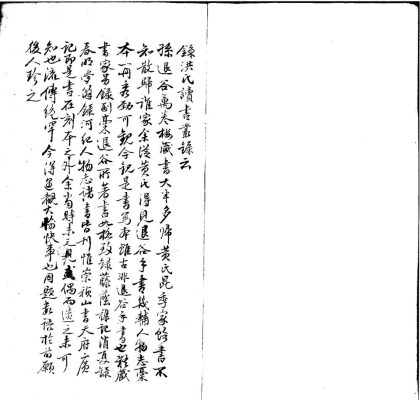 錄洪氏讀書叢錄云
孫退谷萬卷樓藏書大半多歸黃氏昆季家餘書不
知散歸誰家余從黃氏得見退谷手書畿輔人物志稾
本一冊秀勁可觀今觀是書寫本雖古非退谷手書也雜藏
書家另錄副稾退谷所著書如格致錄藤陰謏記消夏錄
春明夢餘錄河紀人物志諸書皆刊惟崇禎山書天府廣
記即是書在刻本之外余當時未之見或偶而遺之未可
知也流傳絕罕今得過觀大愉快事也因題數語於前願
後人珍之